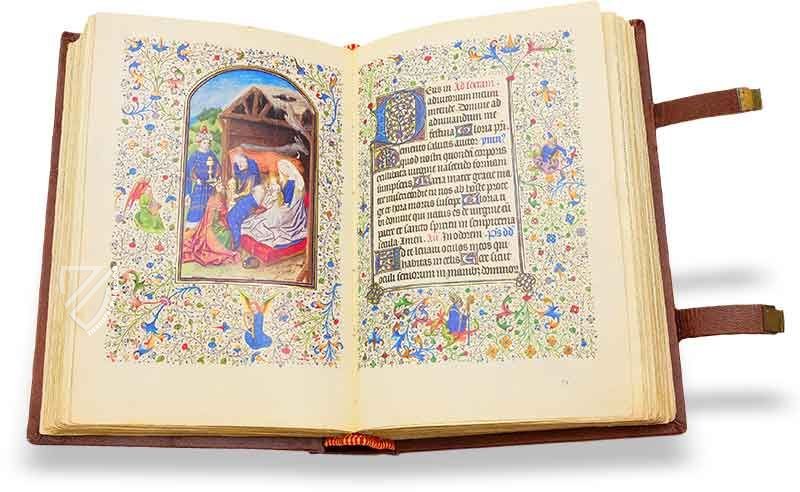 Deus in Ad sextam
adiutorium meum
intende Domine ad
adiuvandum me
festina Gloria pri
Memento salutis auctor ymn
quod nostri quondam corporis
ex illibata virgine nascendo formam
sumpseris Maria mater gratie ma
ter misericordie tu nos ab hoste prote
ge et hora mortis suscipe Gloria ti
bi domine qui natus es de virgine cu
patre et sancto spiritu in sempiterna
secula Amen. An In odorem Ps dd
Ad te levavi oculos meos qui
habitas in celis Ecce sicut
oculi servorum in manibus dominor